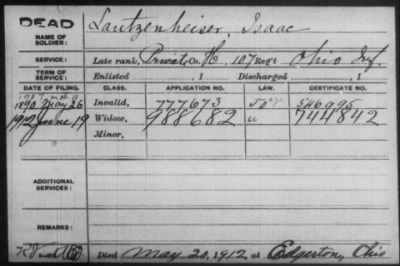 DEAD
NAME OF SOLDIER: Lautzenheiser, Isaac
SERVICE: Late rank, Private Co. H, 107 Reg't Ohio Inf.
TERM OF SERVICE: Enlisted , 1 Discharged , 1
DATE OF FILING. CLASS. APPLICATION NO. LAW. CERTIFICATE NO.
1890 May 26 Invalid, 777673 546095
1912 June 19 Widow, 988682 744842
Minor,
ADDITIONAL SERVICES:
REMARKS:
Died May 20, 1912 at Edgerton, Ohio